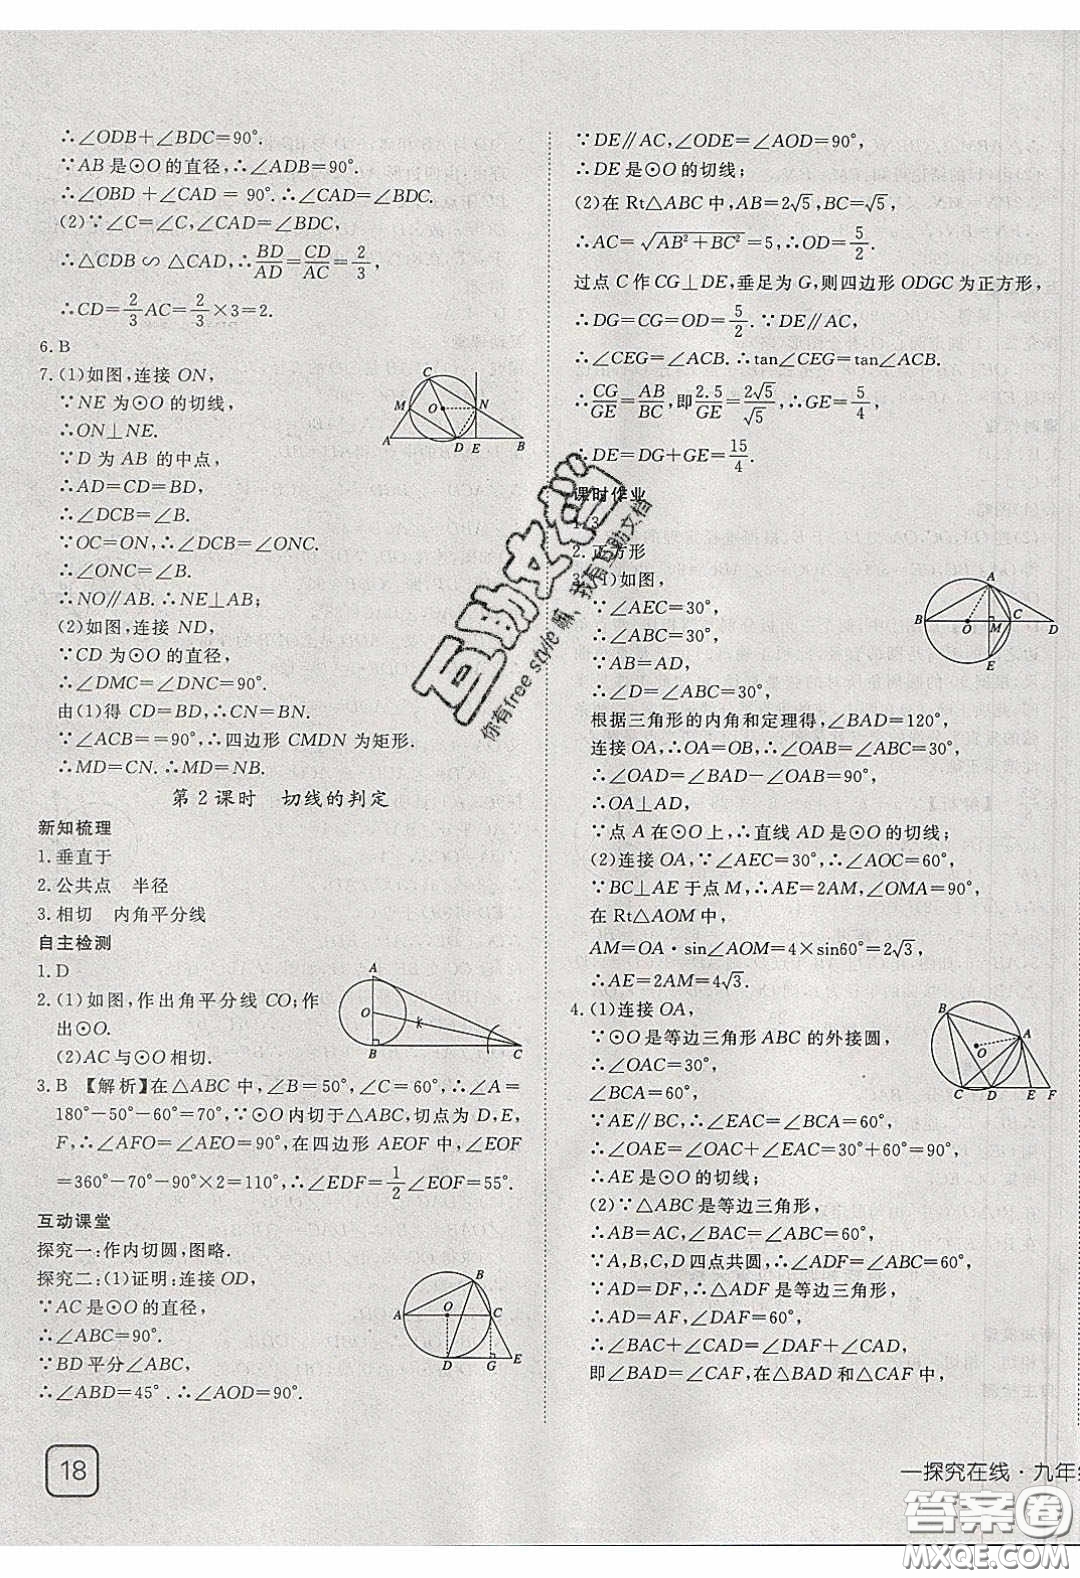 ∴∠ODB+∠BDC=90°.
∵AB是⊙O的直径,∴∠ADB=90°.
∴∠OBD+∠CAD=90°.∴∠CAD=∠BDC.
(2)∵∠C=∠C,∠CAD=∠BDC,
∴△CDB∽△CAD,∴BD/AD=CD/AC=2/3,
∴CD=2/3AC=2/3×3=2.
6.B
7.(1)如图,连接ON,
∵NE为⊙O的切线,
∴ON⊥NE.
∵D为AB的中点,
∴AD=CD=BD,
∴∠DCB=∠B.
∵OC=ON,∴∠DCB=∠ONC.
∴∠ONC=∠B.
∴NO∥AB.∴NE⊥AB;
(2)如图,连接ND,
∵CD为⊙O的直径,
∴∠DMC=∠DNC=90°.
由(1)得CD=BD,∴CN=BN.
∵∠ACB==90°,∴四边形CMDN为矩形.
∴MD=CN.∴MD=NB.
C
M
O
N
A
D
E
B
第2课时 切线的判定
新知梳理
1.垂直于
2.公共点 半径
3.相切 内角平分线
自主检测
1.D
2.(1)如图,作出角平分线CO;作
出⊙O.
(2)AC与⊙O相切.
A
O
B
C
3.B 【解析】在△ABC中,∠B=50°,∠C=60°,∴∠A=
180°-50°-60°=70°,∵⊙O内切于△ABC,切点为D,E,
F,∴∠AFO=∠AEO=90°,在四边形AEOF中,∠EOF
=360°-70°-90°×2=110°,∴∠EDF=1/2∠EOF=55°.
互动课堂
探究一:作内切圆,图略.
探究二:(1)证明:连接OD,
∵AC是⊙O的直径,
∴∠ABC=90°.
∵BD平分∠ABC,
∴∠ABD=45°.∴∠AOD=90°.
B
A
O
C
D
G
E
18
∵DE∥AC,∠ODE=∠AOD=90°.
∴DE是⊙O的切线;
(2)在Rt△ABC中,AB=2√5,BC=√5,
∴AC=√(AB²+BC²)=5,∴OD=5/2.
过点C作CG⊥DE,垂足为G,则四边形ODGC为正方形,
∴DG=CG=OD=5/2.∵DE∥AC,
∴∠CEG=∠ACB.∴tan∠CEG=tan∠ACB.
∴CG/GE=AB/BC,即2.5/GE=2√5/√5,∴GE=5/4,
∴DE=DG+GE=15/4.
课时作业
1.3
2.正方形
3.(1)如图,
∵∠AEC=30°,
∴∠ABC=30°,
∵AB=AD,
∴∠D=∠ABC=30°,
根据三角形的内角和定理得,∠BAD=120°,
连接OA,∴OA=OB,∴∠OAB=∠ABC=30°,
∴∠OAD=∠BAD-∠OAB=90°,
∴OA⊥AD,
∵点A在⊙O上,∴直线AD是⊙O的切线;
(2)连接OA,∵∠AEC=30°,∴∠AOC=60°,
∵BC⊥AE于点M,∴AE=2AM,∠OMA=90°,
在Rt△AOM中,
AM=OA·sin∠AOM=4×sin60°=2√3,
∴AE=2AM=4√3.
A
B
O
M
C
D
E
4.(1)连接OA,
∵⊙O是等边三角形ABC的外接圆,
∴∠OAC=30°,
∠BCA=60°,
∵AE∥BC,∴∠EAC=∠BCA=60°,
∴∠OAE=∠OAC+∠EAC=30°+60°=90°,
∴AE是⊙O的切线;
(2)∵△ABC是等边三角形,
∴AB=AC,∠BAC=∠ABC=60°,
∵A,B,C,D四点共圆,∴∠ADF=∠ABC=60°,
∵AD=DF,∴△ADF是等边三角形,
∴AD=AF,∠DAF=60°,
∴∠BAC+∠CAD=∠DAF+∠CAD,
即∠BAD=∠CAF,在△BAD和△CAF中,
B
A
O
C
D
E
F
一探究在线·九年
互助文档
你有free style嘛、我有互助文档
答案圈
MXQE.COM